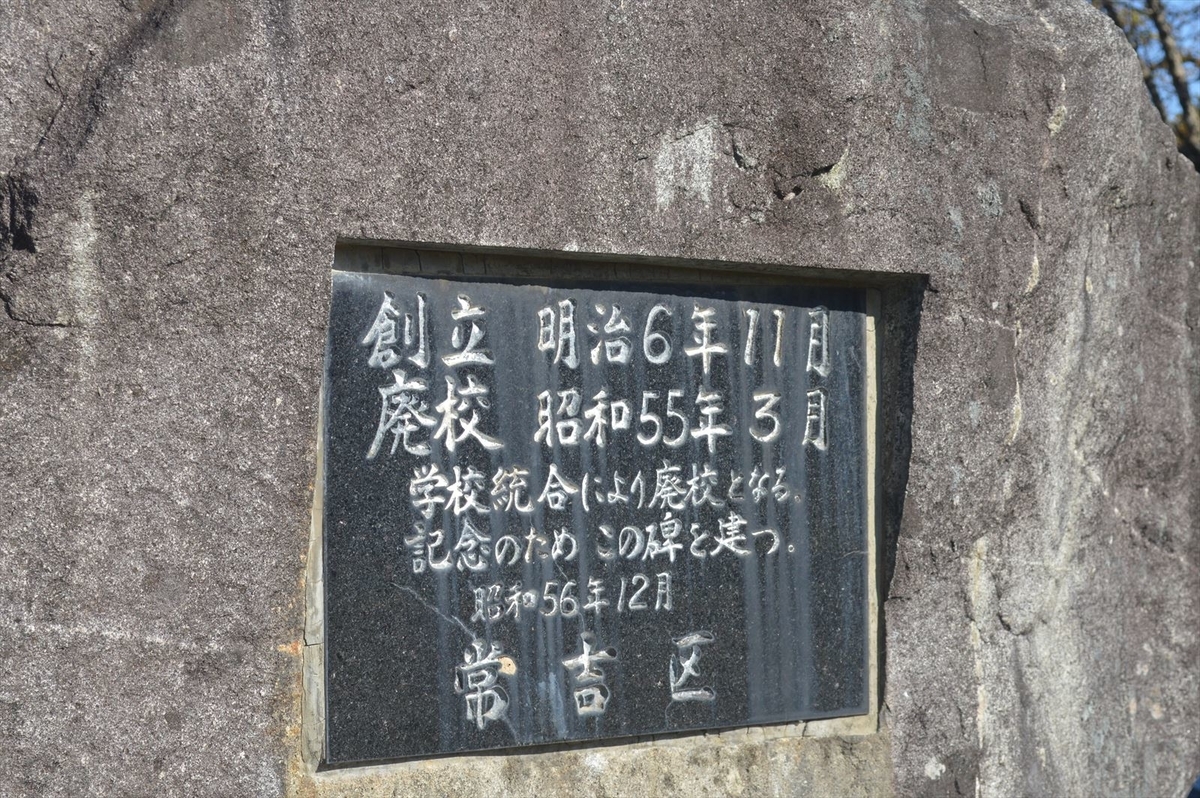 創立 明治6年11月
廃校 昭和55年3月
学校統合により廃校となる。
記念のため この碑を建つ。
昭和56年12月
常吉区